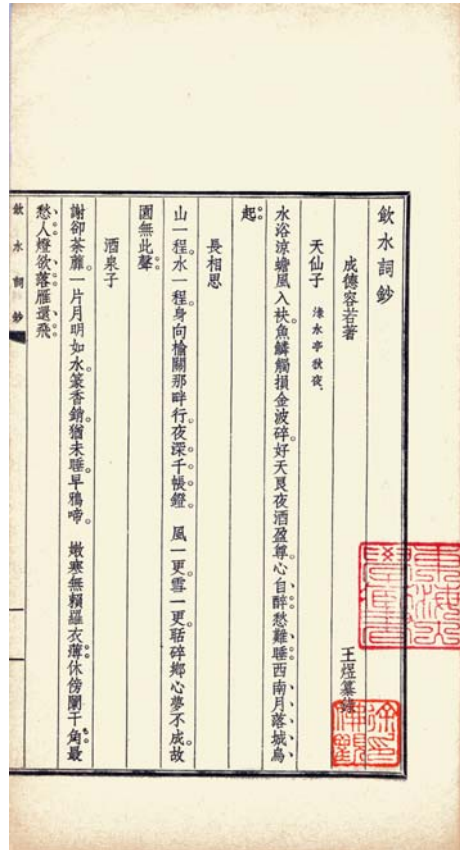 飲水詞鈔
成德容若著
王煜纂錄
天仙子 淥水亭秋夜
水浴涼蟾風入袂。魚鱗觸損金波碎。好天良夜酒盈尊。心自醉。愁難睡。西南月落城烏
起。
長相思
山一程。水一程。身向榆關那畔行。夜深千帳鐙。 風一更。雪一更。聒碎鄉心夢不成。故
園無此聲。
酒泉子
謝卻荼蘼。一片月明如水。篆香銷。猶未睡。早鴉啼。 嫩寒無賴羅衣薄。休傍闌干角。最
愁人。燈欲落。雁還飛。
飲水詞鈔